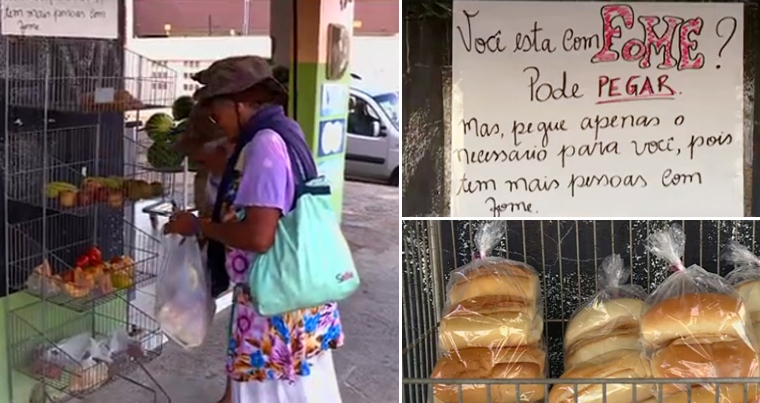 tem mais pessoas com
fome.
Você esta com FOME?
Pode PEGAR.
Mas, pegue apenas o
necessário para você, pois
tem mais pessoas com
fome.